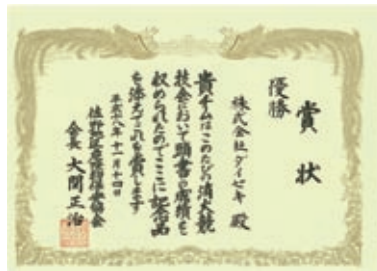 賞状
優勝
株式会社ダイセキ 殿
貴チームはこのたびの消火競
技会において頭書の成績を
収められたのでここに記念品
を添えてこれを賞します
平成十八年十一月十四日
佐野地区危険物保安協会
会長 大関正治